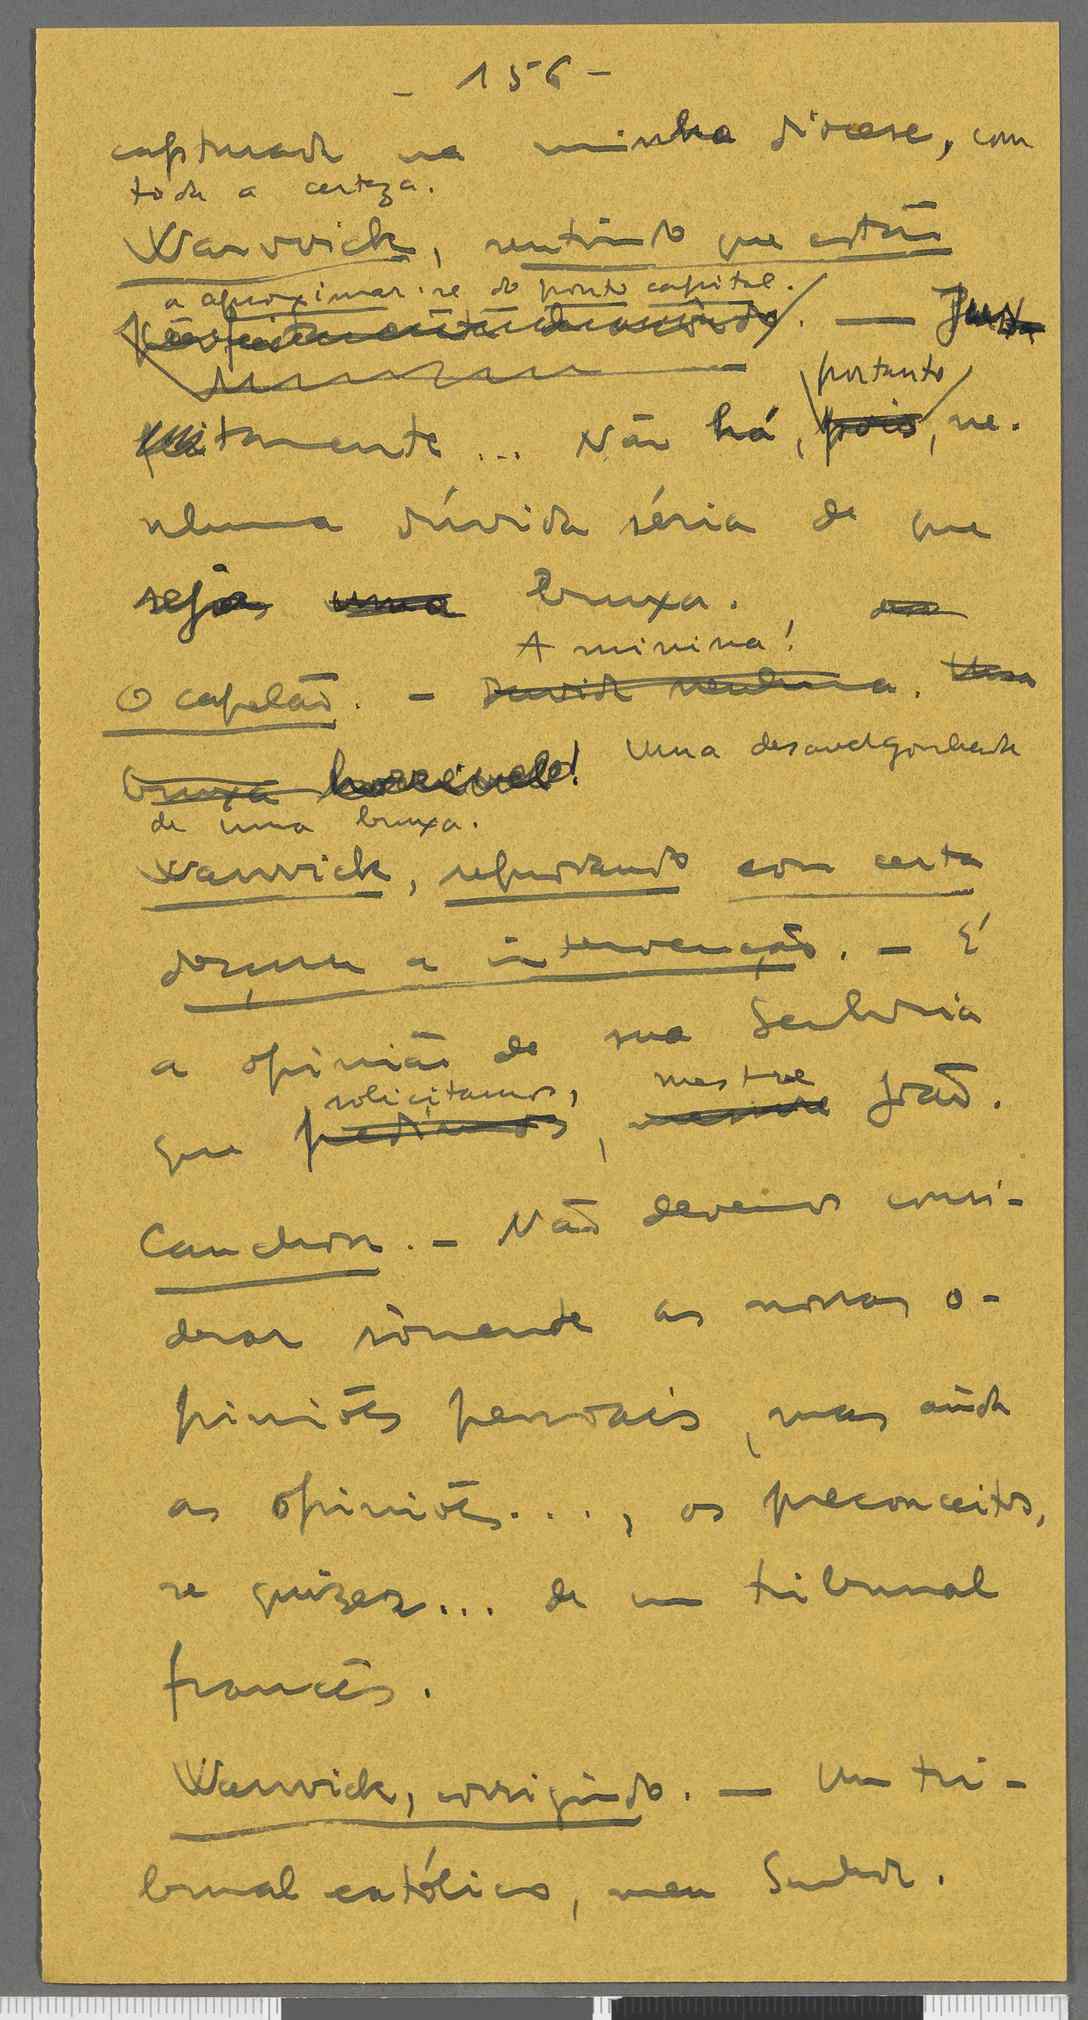 - 156 -
capturada na minha diocese, com
toda a certeza.
Warwick, sentindo que estão
a aproximar-se do ponto capital.
perfeitamente de acôrdo. — Jus
portanto
tamente... Não há, pois, ne-
nhuma dúvida séria de que
seja uma bruxa.
A minina!
O capelão. - Duvida nenhuma. Uma
bruxa horrivel! Uma desavergonhada
de uma bruxa.
Warwick, repudiando com certa
doçura a intervenção. - É
a opinião de sua Senhoria
solicitamos, mestre
que pedimos, messire João.
Cauchon. - Não devemos consi-
derar sòmente as nossas o-
piniões pessoais, mas ainda
as opiniões..., os preconceitos,
se quizer... de um tribunal
francês.
Warwick, corrigindo. — Um tri-
bunal católico, meu Senhor.